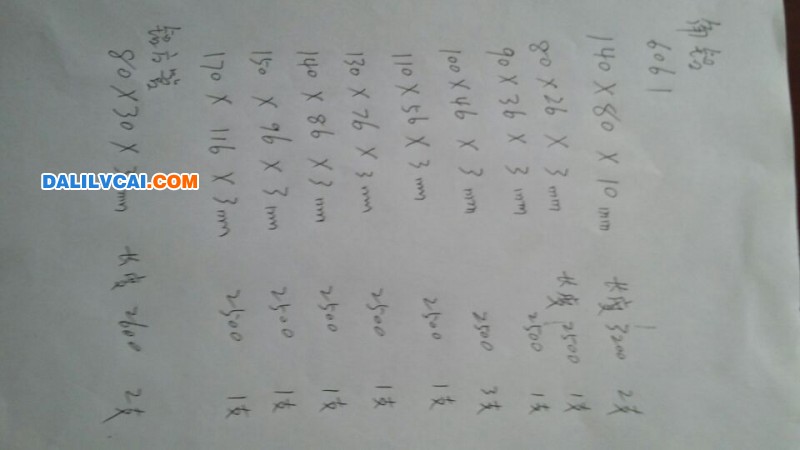 6061
140 X 80 X 10 mm 长度 3200 2支
80 X 26 X 3 mm 长度 2500 1支
90 X 36 X 3 mm 2500 1支
100 X 46 X 3 mm 2500 3支
110 X 56 X 3 mm 2500 1支
130 X 76 X 3 mm 2500 1支
140 X 86 X 3 mm 2500 1支
150 X 96 X 3 mm 2500 1支
170 X 116 X 3 mm 2500 1支
80 X 30 X mm 长度 2600 2支
DALILVCAI.COM